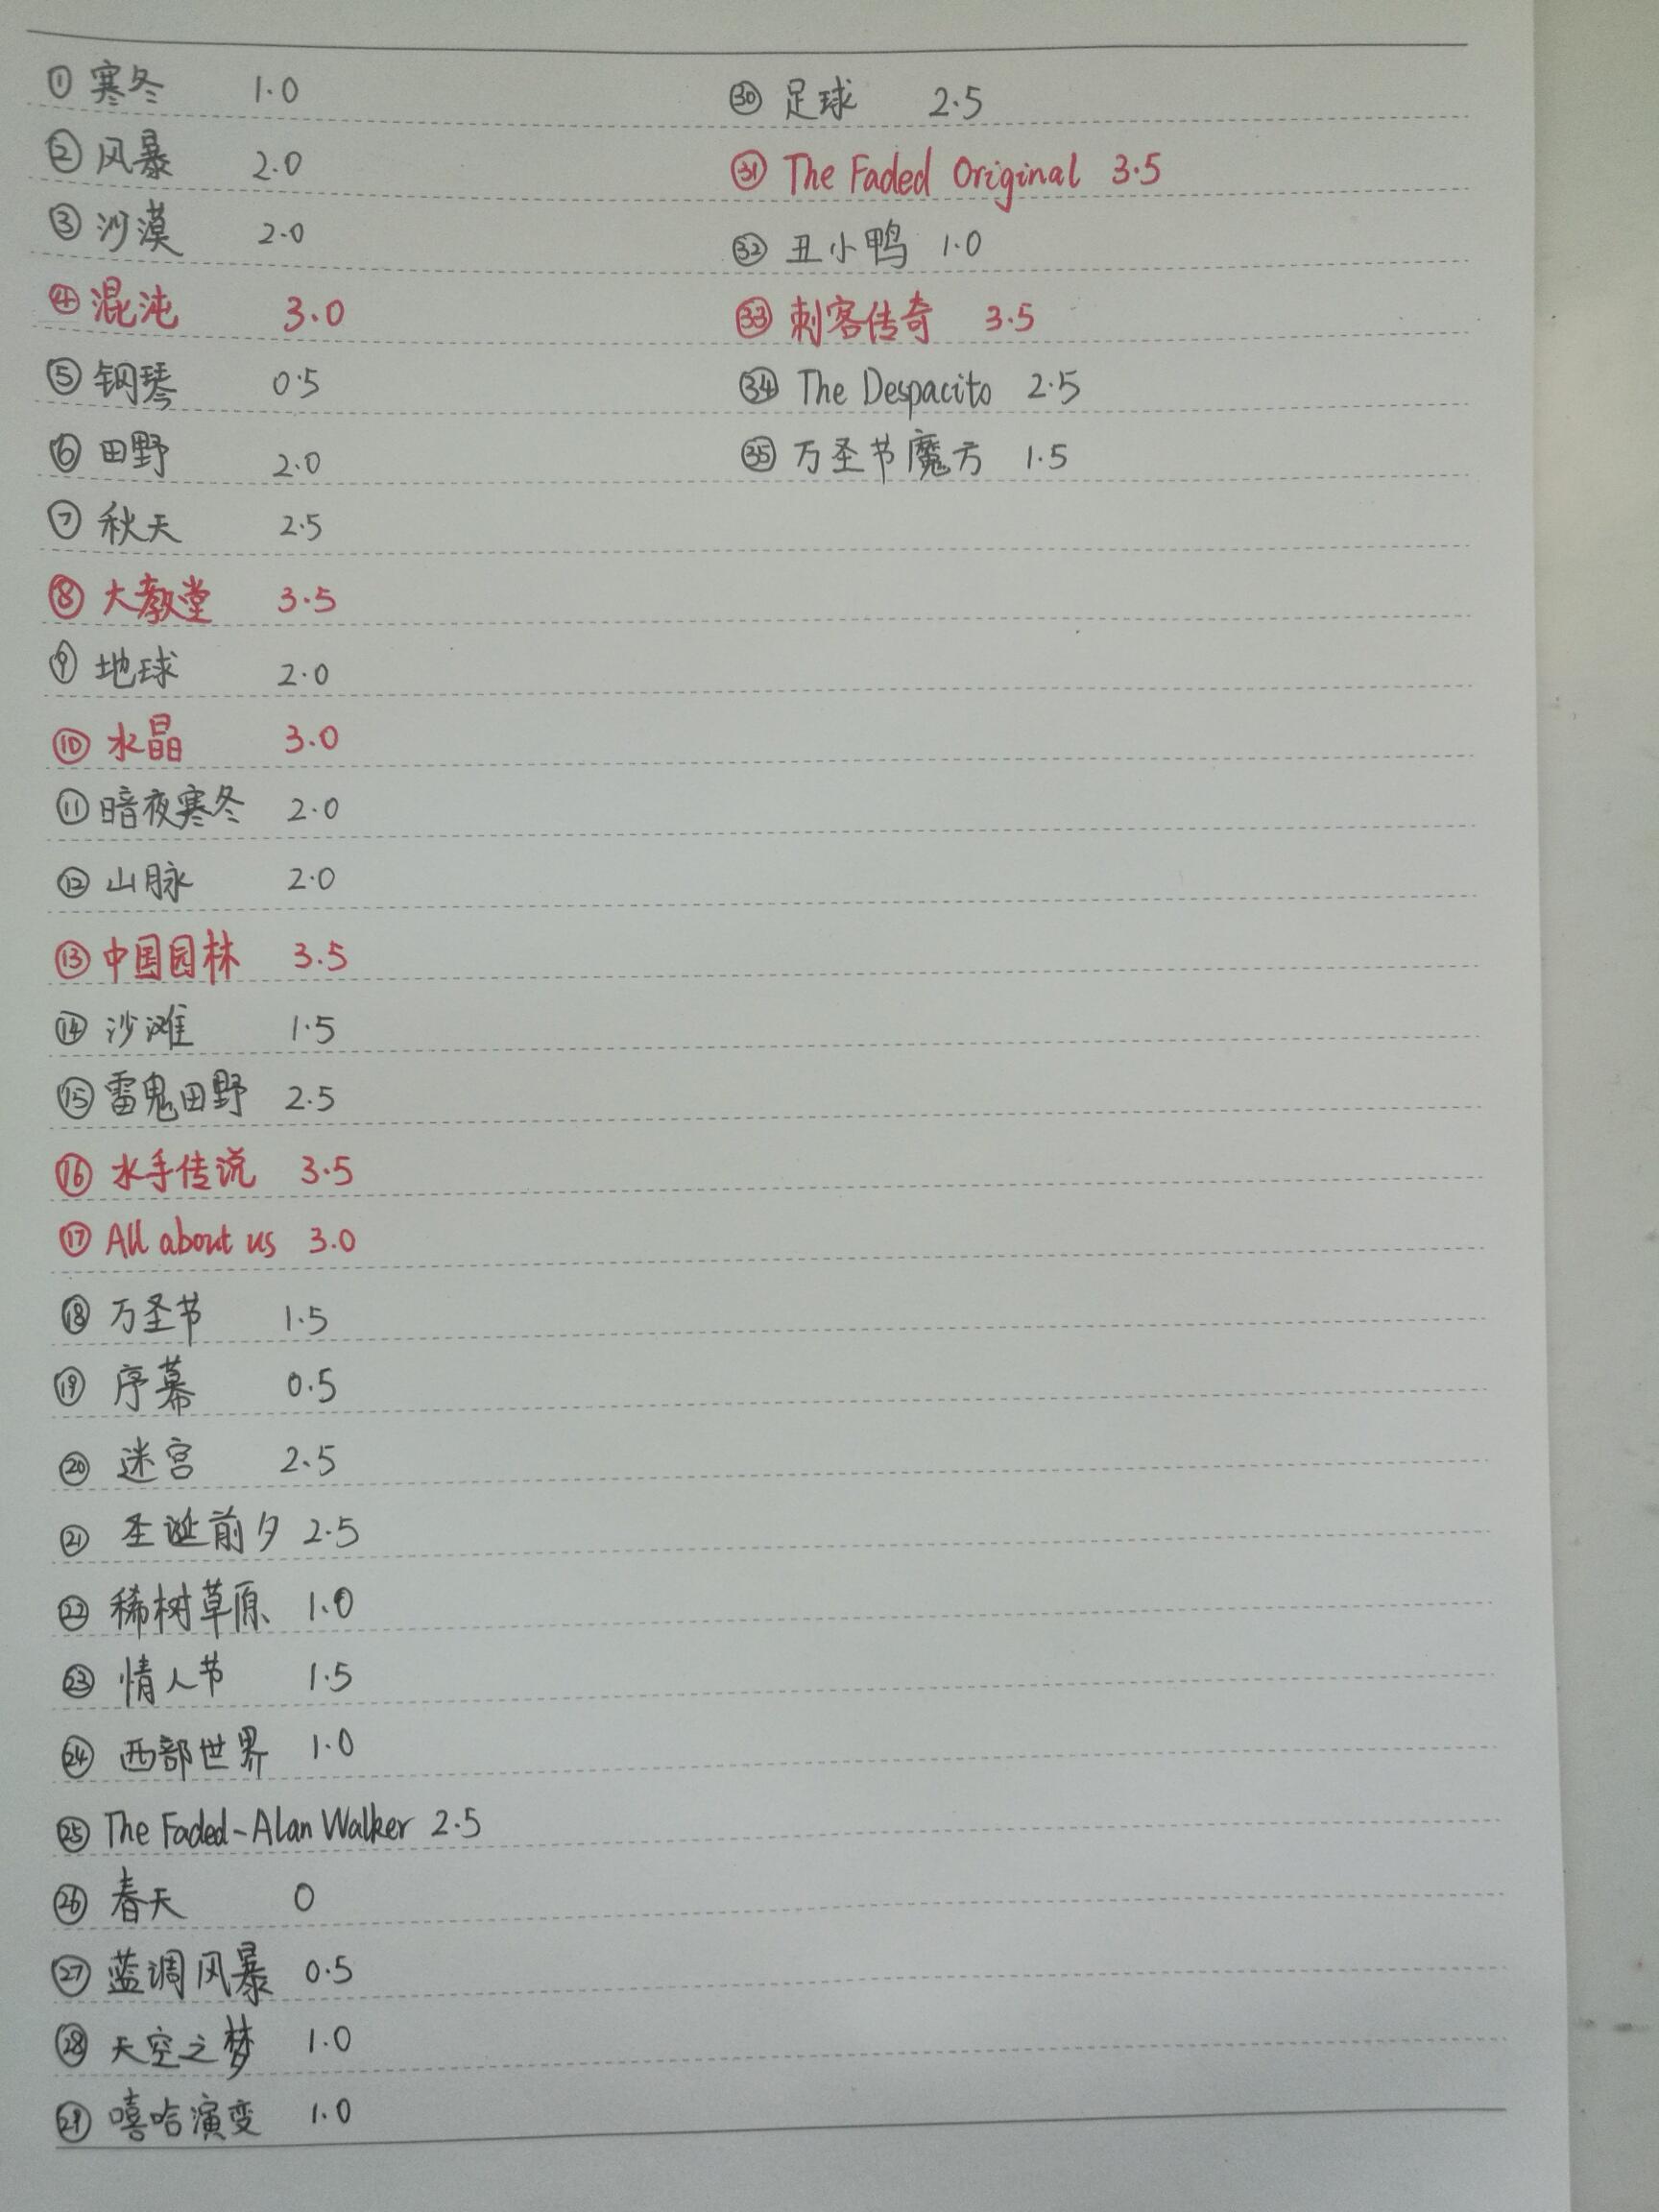 ① 寒冬 1.0
② 风暴 2.0
③ 沙漠 2.0
④ 混沌 3.0
⑤ 钢琴 0.5
⑥ 田野 2.0
⑦ 秋天 2.5
⑧ 大教堂 3.5
⑨ 地球 2.0
⑩ 水晶 3.0
⑪ 暗夜寒冬 2.0
⑫ 山脉 2.0
⑬ 中国园林 3.5
⑭ 沙滩 1.5
⑮ 雷鬼田野 2.5
⑯ 水手传说 3.5
⑰ All about us 3.0
⑱ 万圣节 1.5
⑲ 序幕 0.5
⑳ 迷宫 2.5
㉑ 圣诞前夕 2.5
㉒ 稀树草原 1.0
㉓ 情人节 1.5
㉔ 西部世界 1.0
㉕ The Faded-Alan Walker 2.5
㉖ 春天 0
㉗ 蓝调风暴 0.5
㉘ 天空之梦 1.0
㉙ 嘻哈演变 1.0
㉚ 足球 2.5
㉛ The Faded Original 3.5
㉜ 丑小鸭 1.0
㉝ 刺客传奇 3.5
㉞ The Despacito 2.5
㉟ 万圣节魔方 1.5